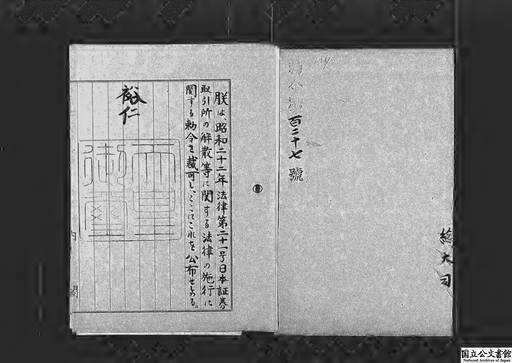 百二十七號
朕は、昭和二十二年法律第二十一号日本証券
取引所の解散等に関する法律の施行に
関する勅令を裁可し、ここにこれを公布せしめる。
裕仁
天皇
御璽
内
閣
国立公文書館
National Archives of Japan